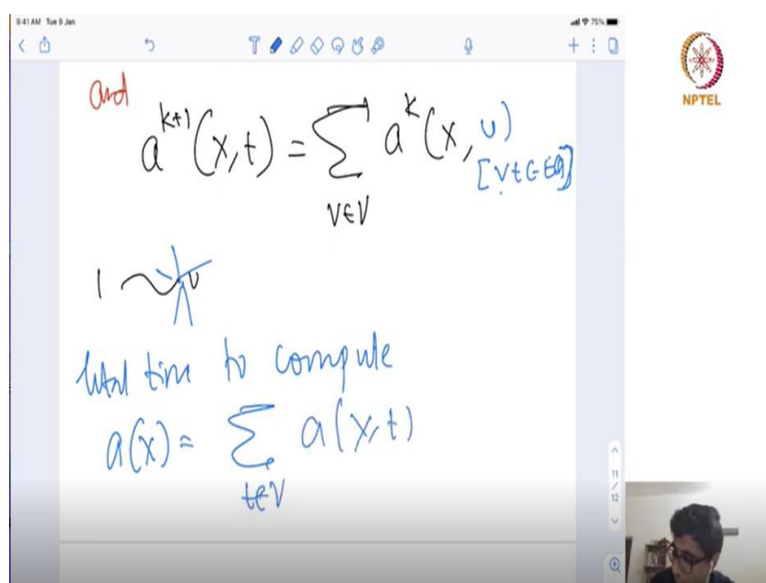 9:41 AM Tue 9 Jan
75%
NPTEL
and
a^{k+1}(x,t) = \sum_{v∈V} a^k(x, v)
1 v
time to compute
a(x) = \sum_{t∈V} a(x,t)
11
/
12